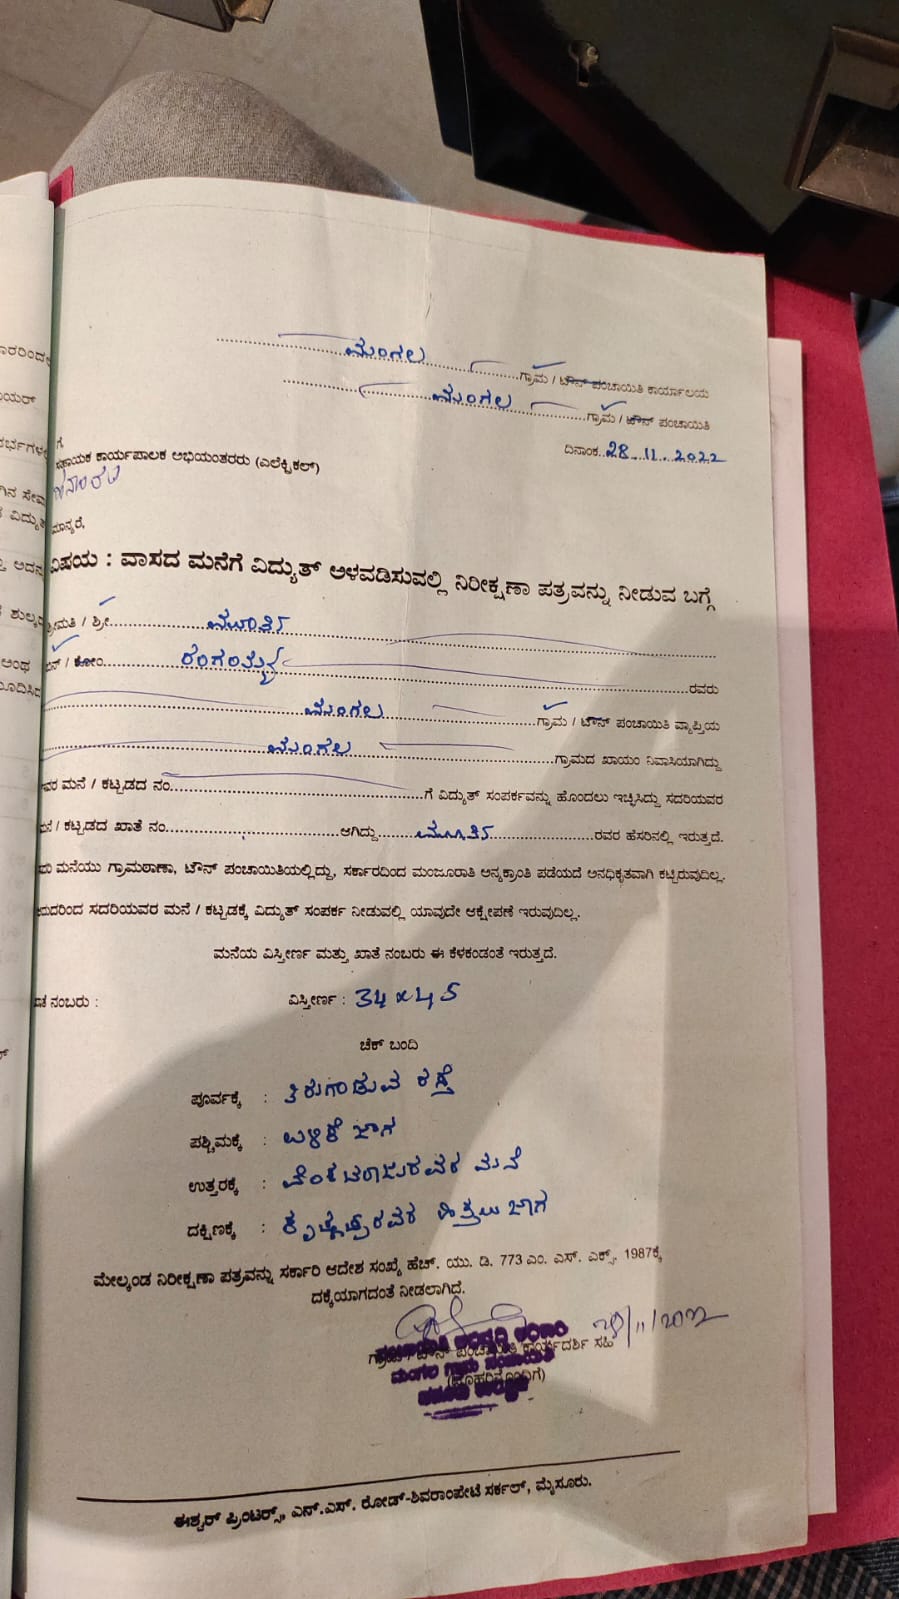 ಮಂಗಲ ಗ್ರಾಮ / ಟೌನ್ ಪಂಚಾಯಿತಿ ಕಾರ್ಯಾಲಯ
ಮಂಗಲ ಗ್ರಾಮ / ಟೌನ್ ಪಂಚಾಯಿತಿ
ದಿನಾಂಕ 28.11.2022
ಗೆ
ಸಹಾಯಕ ಕಾರ್ಯಪಾಲಕ ಅಭಿಯಂತರರು (ಎಲೆಕ್ಟ್ರಿಕಲ್)
ಮಾನ್ಯರೆ,
ವಿಷಯ : ವಾಸದ ಮನೆಗೆ ವಿದ್ಯುತ್ ಅಳವಡಿಸುವಲ್ಲಿ ನಿರೀಕ್ಷಣಾ ಪತ್ರವನ್ನು ನೀಡುವ ಬಗ್ಗೆ
ಶ್ರೀಮತಿ / ಶ್ರೀ. ಮೂರ್ತಿ
ಬಿನ್ / ಕೋಂ ರಂಗಯ್ಯ ರವರು
ಮಂಗಲ ಗ್ರಾಮ / ಟೌನ್ ಪಂಚಾಯಿತಿ ವ್ಯಾಪ್ತಿಯ
ಮಂಗಲ ಗ್ರಾಮದ ಖಾಯಂ ನಿವಾಸಿಯಾಗಿದ್ದು
ಮನೆ / ಕಟ್ಟಡದ ನಂ. ಗೆ ವಿದ್ಯುತ್ ಸಂಪರ್ಕವನ್ನು ಹೊಂದಲು ಇಚ್ಛಿಸಿದ್ದು ಸದರಿಯವರ
ಮನೆ / ಕಟ್ಟಡದ ಖಾತೆ ನಂ. ಆಗಿದ್ದು ಮೂರ್ತಿ ರವರ ಹೆಸರಿನಲ್ಲಿ ಇರುತ್ತದೆ.
ಮನೆಯು ಗ್ರಾಮಠಾಣಾ, ಟೌನ್ ಪಂಚಾಯಿತಿಯಲ್ಲಿದ್ದು, ಸರ್ಕಾರದಿಂದ ಮಂಜೂರಾತಿ ಅನ್ಯಕ್ರಾಂತಿ ಪಡೆಯದೆ ಅನಧಿಕೃತವಾಗಿ ಕಟ್ಟಿರುವುದಿಲ್ಲ.
ಆದುದರಿಂದ ಸದರಿಯವರ ಮನೆ / ಕಟ್ಟಡಕ್ಕೆ ವಿದ್ಯುತ್ ಸಂಪರ್ಕ ನೀಡುವಲ್ಲಿ ಯಾವುದೇ ಆಕ್ಷೇಪಣೆ ಇರುವುದಿಲ್ಲ.
ಮನೆಯ ವಿಸ್ತೀರ್ಣ ಮತ್ತು ಖಾತೆ ನಂಬರು ಈ ಕೆಳಕಂಡಂತೆ ಇರುತ್ತದೆ.
ಖಾತೆ ನಂಬರು : ವಿಸ್ತೀರ್ಣ : 34x45
ಚೆಕ್ ಬಂದಿ
ಪೂರ್ವಕ್ಕೆ : ತಿರುಗಾಡುವ ರಸ್ತೆ
ಪಶ್ಚಿಮಕ್ಕೆ : ಬಳಿಕೆ ಜಾಗ
ಉತ್ತರಕ್ಕೆ : ವೆಂಕಟರಾಜುರವರ ಮನೆ
ದಕ್ಷಿಣಕ್ಕೆ : ಹಿತ್ತಲು ಜಾಗ
ಮೇಲ್ಕಂಡ ನಿರೀಕ್ಷಣಾ ಪತ್ರವನ್ನು ಸರ್ಕಾರಿ ಆದೇಶ ಸಂಖ್ಯೆ ಹೆಚ್. ಯು. ಡಿ. 773 ಎಂ. ಎಸ್. ಎಕ್ಸ್. 1987ಕ್ಕೆ
ದಕ್ಕೆಯಾಗದಂತೆ ನೀಡಲಾಗಿದೆ.
ಗ್ರಾಮ / ಟೌನ್ ಪಂಚಾಯಿತಿ ಕಾರ್ಯದರ್ಶಿ ಸಹಿ 28/11/2022
ಮಂಗಲ ಗ್ರಾಮ ಪಂಚಾಯಿತಿ
(ಮೊಹರಿನೊಂದಿಗೆ)
ಈಶ್ವರ್ ಪ್ರಿಂಟರ್ಸ್, ಎನ್.ಎಸ್. ರೋಡ್-ಶಿವರಾಂಪೇಟೆ ಸರ್ಕಲ್, ಮೈಸೂರು.